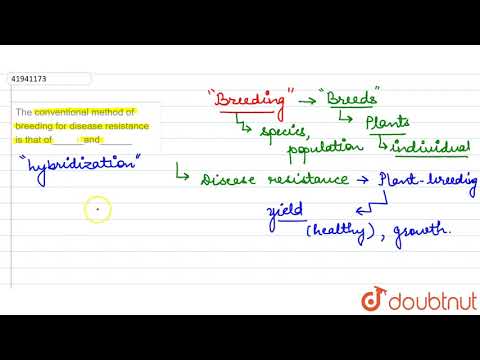 41941173
The conventional method of
breeding for disease resistance
is that of ______ and ______
"hybridization"
"Breeding" → "Breeds"
species,
population
Plants
individual
Disease resistance → Plant-breeding
yield
(healthy), growth.
doubtnut